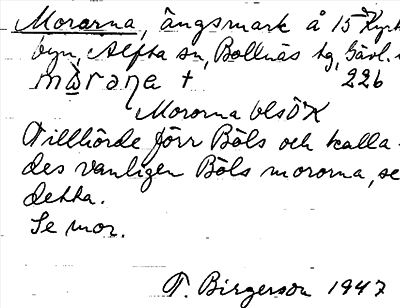 Morarna, ängsmark å 15 Kyrk
byn, Alfta sn, Bollnäs tg, Gävl.
màrana + 226
Mororna blsÖK
Tillhörde förr Böls och kalla-
des vanligen Böls mororna, se
detta.
Se mor.
T. Birgerson 1947